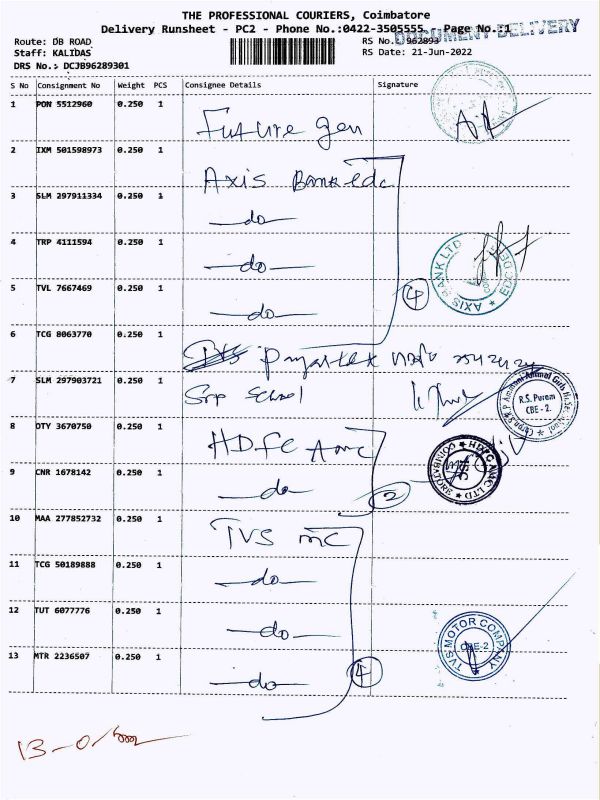 THE PROFESSIONAL COURIERS, Coimbatore
Delivery Runsheet - PC2 - Phone No.:0422-3505555 Page No.:1
DOCUMENT DELIVERY
Route: DB ROAD
RS No.: 962893
Staff: KALIDAS
RS Date: 21-Jun-2022
DRS No.: DCJB96289301
S No Consignment No Weight PCS Consignee Details Signature
1 PON 5512960 0.250 1
Future gen
2 IXM 501598973 0.250 1
Axis Bank edc
3 SLM 297911334 0.250 1
do
4 TRP 4111594 0.250 1
do
AXIS BANK LTD
5 TVL 7667469 0.250 1
do
4
6 TCG 8063770 0.250 1
7 SLM 297903721 0.250 1
School
R.S. Puram
CBE - 2.
8 OTY 3670750 0.250 1
HDFC Amc
HDFC AMC LTD
COIMBATORE
9 CNR 1678142 0.250 1
do
2
10 MAA 277852732 0.250 1
TVS mc
11 TCG 50189888 0.250 1
do
12 TUT 6077776 0.250 1
do
TVS MOTOR COMPANY
CBE-2
13 MTR 2236507 0.250 1
do
4